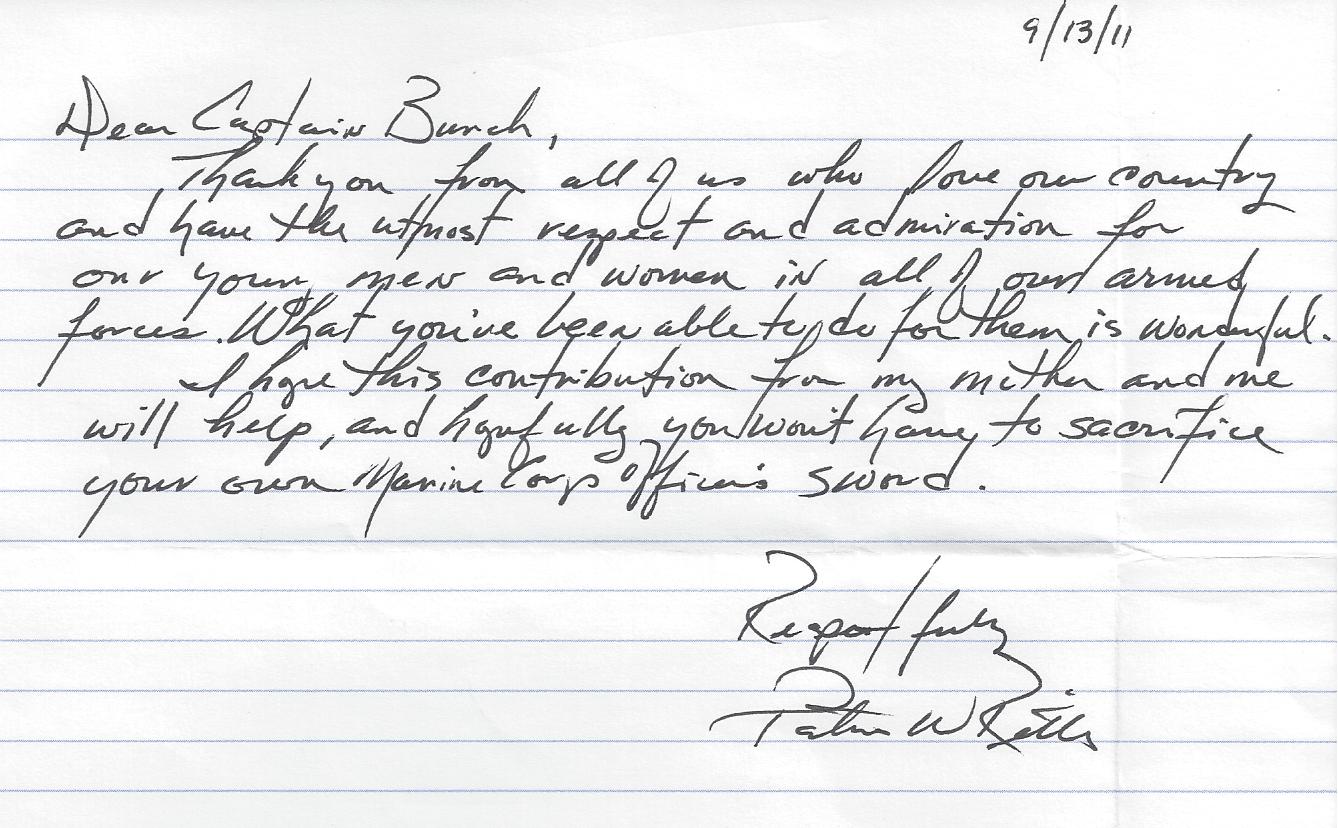 9/13/11
Dear Captain Bunch,
Thank you from all of us who love our country
and have the utmost respect and admiration for
our young men and women in all of our armed
forces. What you've been able to do for them is wonderful.
I hope this contribution from my mother and me
will help, and hopefully you won't have to sacrifice
your own Marine Corps Officer's sword.
Respectfully
W